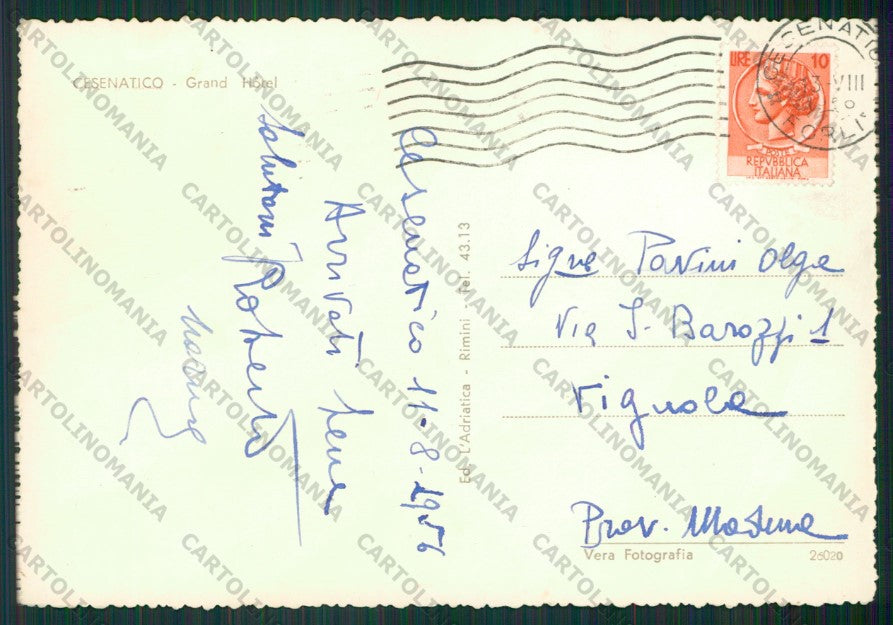 CESENATICO - Grand Hôtel
Cesenatico 11-8-1956
Arrivati bene
Saluti
Roberto
Ed. L'Adriatica - Rimini - Tel. 43.13
LIRE 10
POSTE
REPVBBLICA
ITALIANA
CESENATICO
VIII
FORLI
Sigra Pavini Olga
Via J. Barozzi 1
Vignola
Prov. Modena
Vera Fotografia
26020
CARTOLINOMANIA